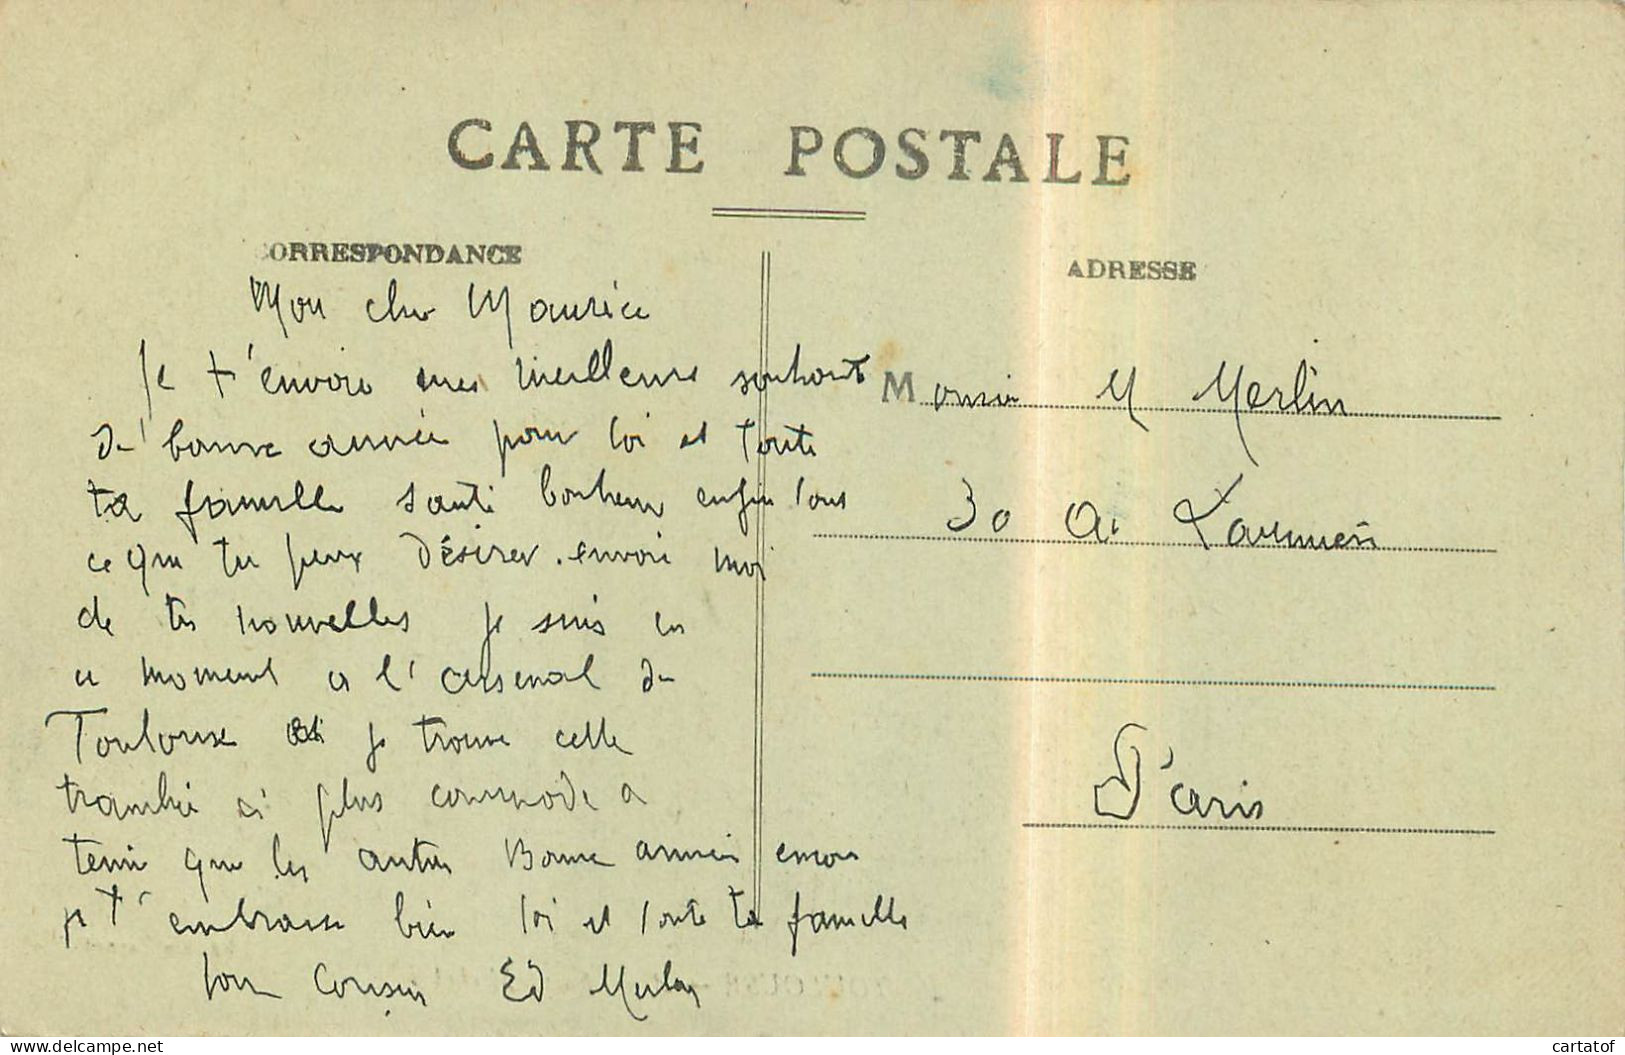 CARTE POSTALE
CORRESPONDANCE
ADRESSE
Mon cher Maurice
Je t'envoie mes meilleurs souhait
de bonne année pour toi et toute
ta famille santé bonheur enfin tous
ce que tu peux désirer. envoie moi
de tes nouvelles je suis en
ce moment a l'arsenal de
Toulouse et je trouve cette
plus commode a
tenir que les autres Bonne année encore
je t'embrasse bien toi et toute ta famille
ton Cousin Ed Merlin
Monsieur M Merlin
30
Paris
cartes-postales.delcampe.net
cartatof